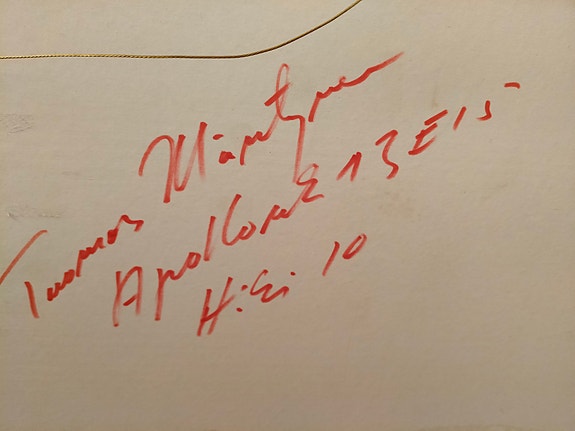 Tuomas Mäntynen
Apollonk 13 E 15
H:ki 10